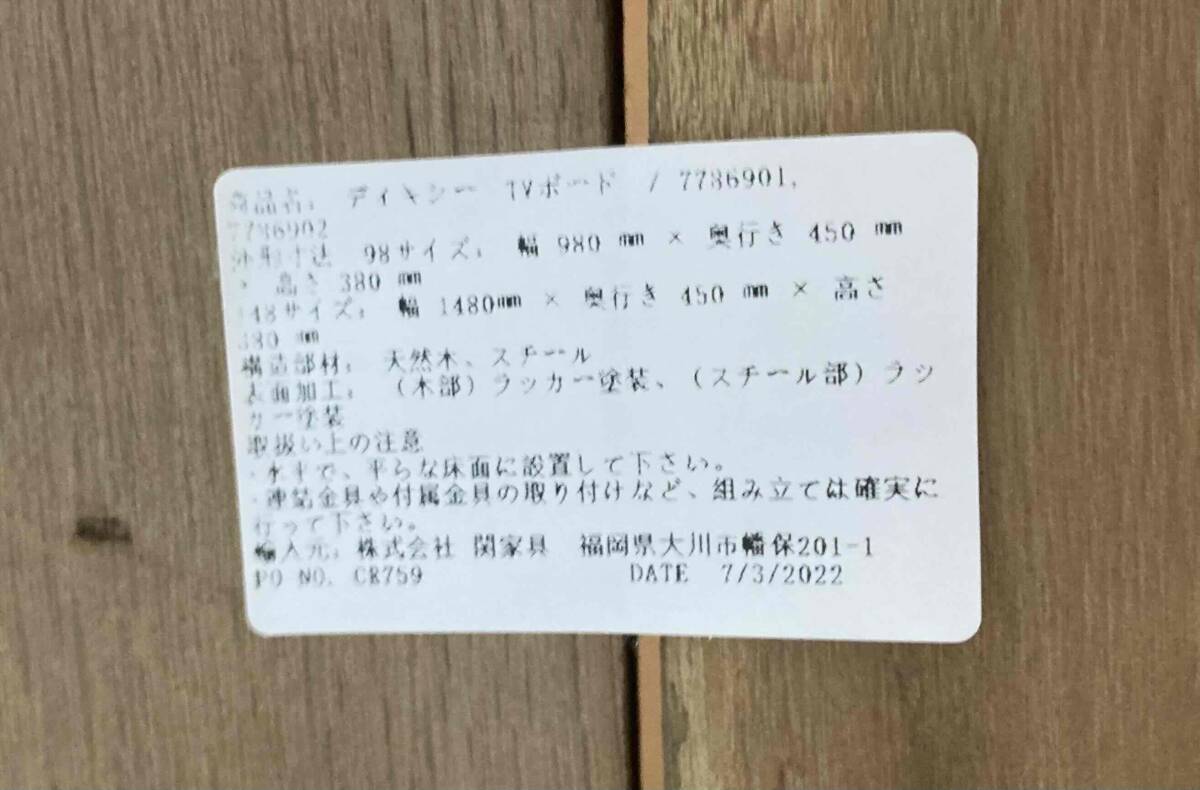 商品名: ディキシー TVボード / 7736901,
7736902
外形寸法 98サイズ: 幅 980 mm × 奥行き 450 mm
× 高さ 380 mm
148サイズ: 幅 1480mm × 奥行き 450 mm × 高さ
380 mm
構造部材: 天然木、スチール
表面加工: (木部)ラッカー塗装、(スチール部)ラッ
カー塗装
取扱い上の注意
・水平で、平らな床面に設置して下さい。
・連結金具や付属金具の取り付けなど、組み立ては確実に
行って下さい。
輸入元: 株式会社 関家具 福岡県大川市幡保201-1
PO NO. CR759 DATE 7/3/2022